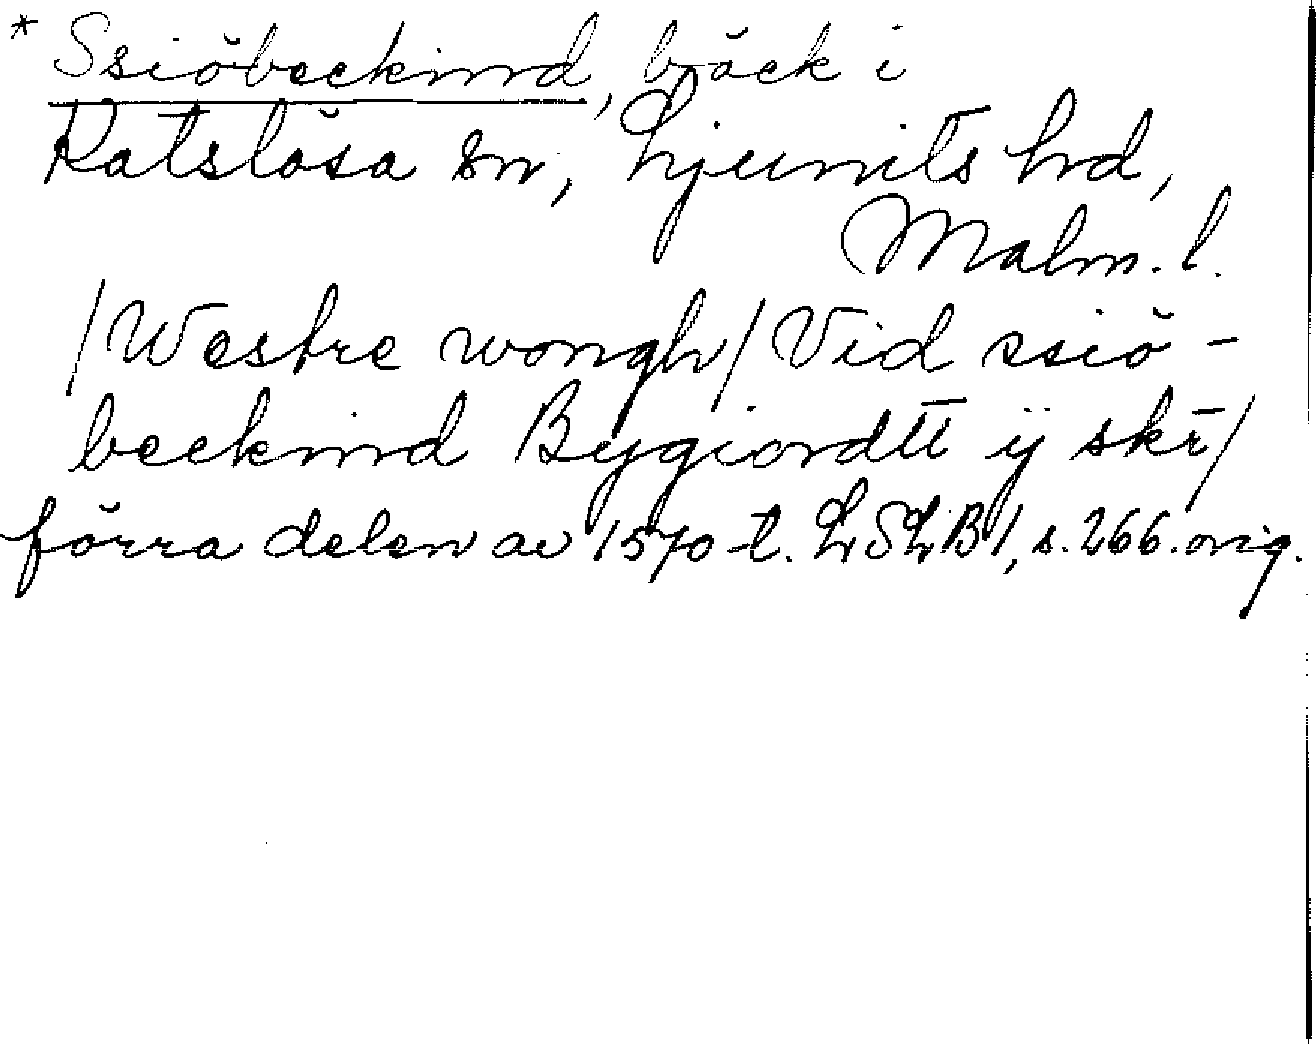 * Ssiöbeckind, bäck i
Katslösa sn, Ljunits hd,
Malm. l.
/Westre wongh/ Vid ssiö-
beckind Bygiordtt ij skr̄/
förra delen av 1570-t. LSLB1, s. 266. orig.